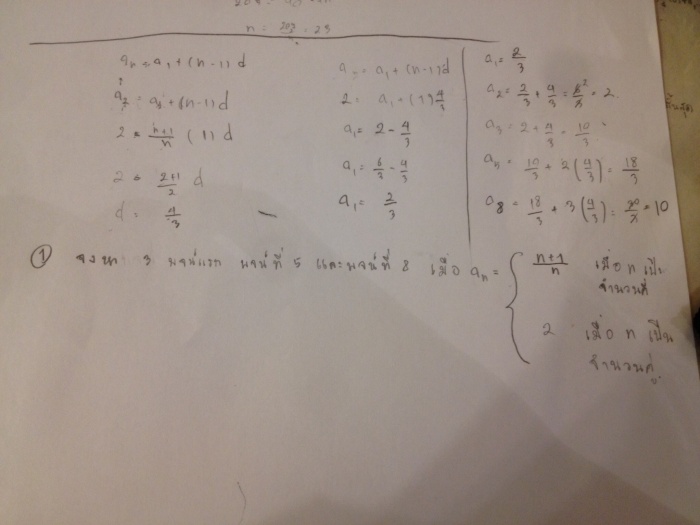 n = 203/ = 29
aₙ = a₁ + (n-1) d
a₂ = a₁ + (n-1) d
2 = n+1/n (1) d
2 = 2+1/2 d
d = 4/3
a = a₁ + (n-1)d
2 = a₁ + (1) 4/3
a₁ = 2 - 4/3
a₁ = 6/3 - 4/3
a₁ = 2/3
a₁ = 2/3
a₂ = 2/3 + 4/3 = 6/3 = 2
a₃ = 2 + 4/3 = 10/3
a₅ = 10/3 + 2(4/3) = 18/3
a₈ = 18/3 + 3(4/3) = 30/3 = 10
① จงหา 3 พจน์แรก พจน์ที่ 5 และพจน์ที่ 8 เมื่อ aₙ = { n+1/n เมื่อ n เป็น
จำนวนคี่
2 เมื่อ n เป็น
จำนวนคู่